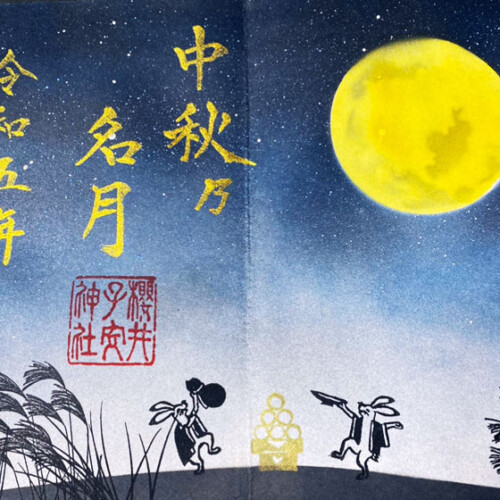 中秋乃
名月
令和五年
櫻井
子安
神社